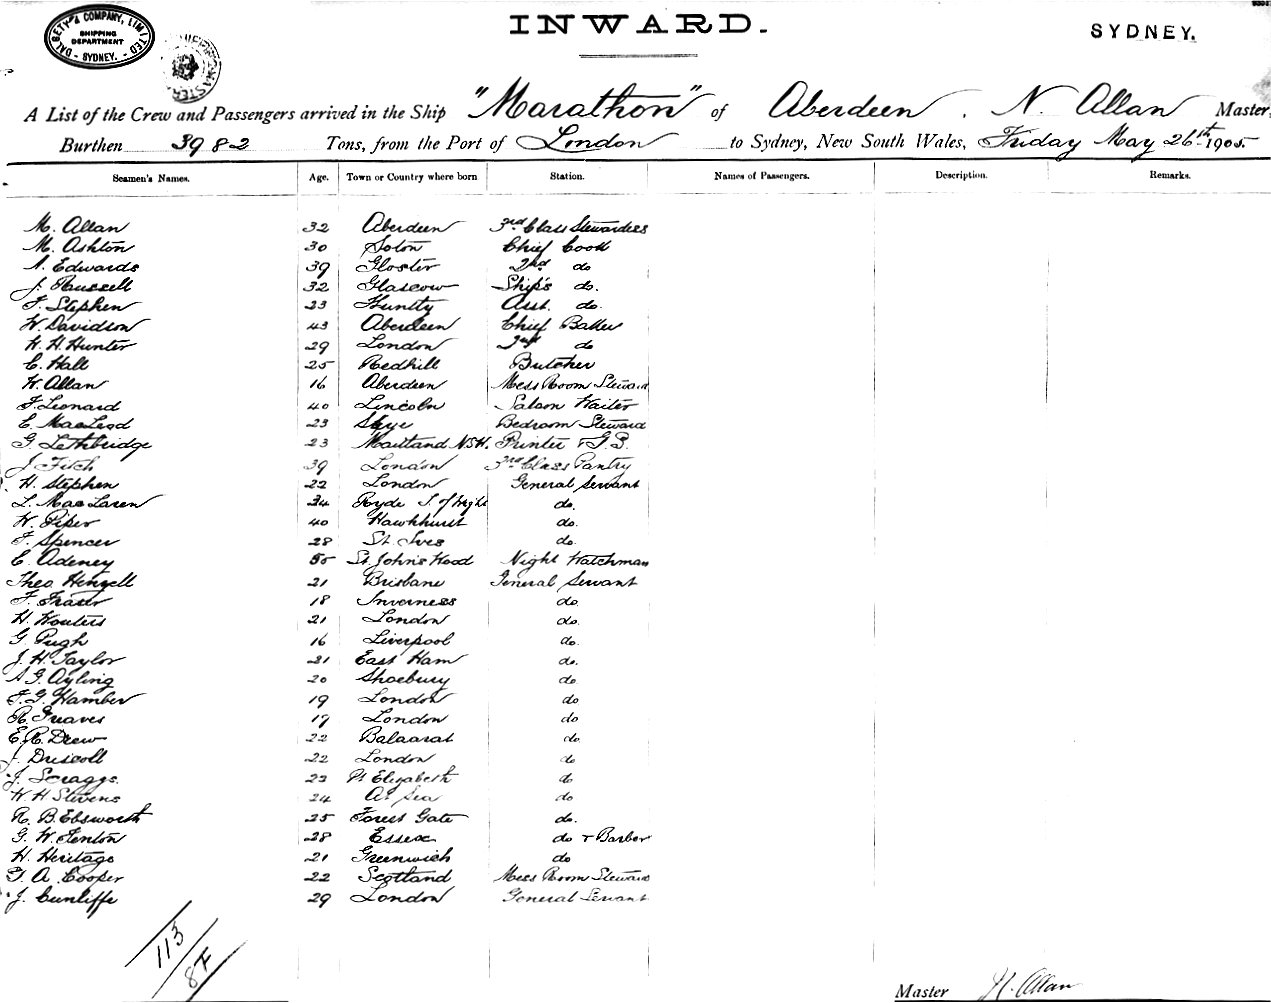 DALGETY & COMPANY, LIMITED
SHIPPING
DEPARTMENT
- SYDNEY. -
INWARD.
SYDNEY.
A List of the Crew and Passengers arrived in the Ship "Marathon" of Aberdeen, N. Allan Master,
Burthen 3982 Tons, from the Port of London to Sydney, New South Wales, Friday May 26th 1905.
Seamen's Names. Age. Town or Country where born Station. Names of Passengers. Description. Remarks.
M. Allan 32 Aberdeen 3rd Class Stewardess
M. Ashton 30 Soton Chief Cook
A. Edwards 39 Gloster 2nd do
J. Russell 32 Glascow Ship's do.
F. Stephen 23 Huntly Asst. do.
W. Davidson 43 Aberdeen Chief Baker
W. H. Hunter 29 London 2nd do
C. Hall 25 Redhill Butcher
W. Allan 16 Aberdeen Mess Room Steward
F. Leonard 40 Lincoln Saloon Waiter
E. MacLeod 23 Skye Bedroom Steward
G. Lethbridge 23 Maitland N.S.W. Printer & G.S.
J. Fitch 39 London 3rd Class Pantry
H. Stephen 22 London General Servant
L. MacLaren 34 Ryde I. of Wight do.
W. Piper 40 Hawkhurst do.
F. Spencer 28 St. Ives do.
C. Adeney 55 St. John's Wood Night Watchman
Theo Henzell 21 Brisbane General Servant
F. Fraser 18 Inverness do.
H. Wouters 21 London do.
G. Pugh 16 Liverpool do.
J. H. Taylor 21 East Ham do.
A. G. Ayling 20 Shoebury do.
F. G. Hamber 19 London do
R. Greaves 17 London do
E. R. Drew 22 Balaarat do.
J. Driscoll 22 London do
J. Scraggs. 22 Pt Elizabeth do
W. H Stevens 24 At Sea do
R. B. Ebsworth 25 Forest Gate do.
G. W. Fenton 28 Essex do & Barber
H. Heritage 21 Greenwich do
G. A. Cooper 22 Scotland Mess Room Steward
J. Cunliffe 29 London General Servant
113
8F
Master N. Allan